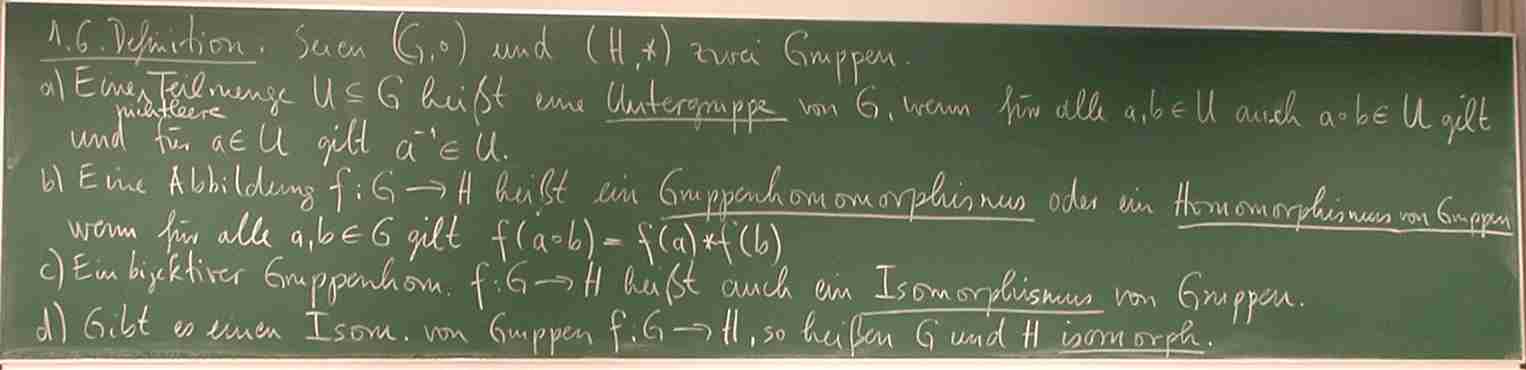 1.6. Definition. Seien (G,∘) und (H,*) zwei Gruppen.
a) Eine nichtleere Teilmenge U ⊆ G heißt eine Untergruppe von G, wenn für alle a,b ∈ U auch a∘b ∈ U gilt
und für a ∈ U gilt a⁻¹ ∈ U.
b) Eine Abbildung f: G → H heißt ein Gruppenhomomorphismus oder ein Homomorphismus von Gruppen
wenn für alle a,b ∈ G gilt f(a∘b) = f(a)*f(b)
c) Ein bijektiver Gruppenhom. f: G → H heißt auch ein Isomorphismus von Gruppen.
d) Gibt es einen Isom. von Gruppen f: G → H, so heißen G und H isomorph.